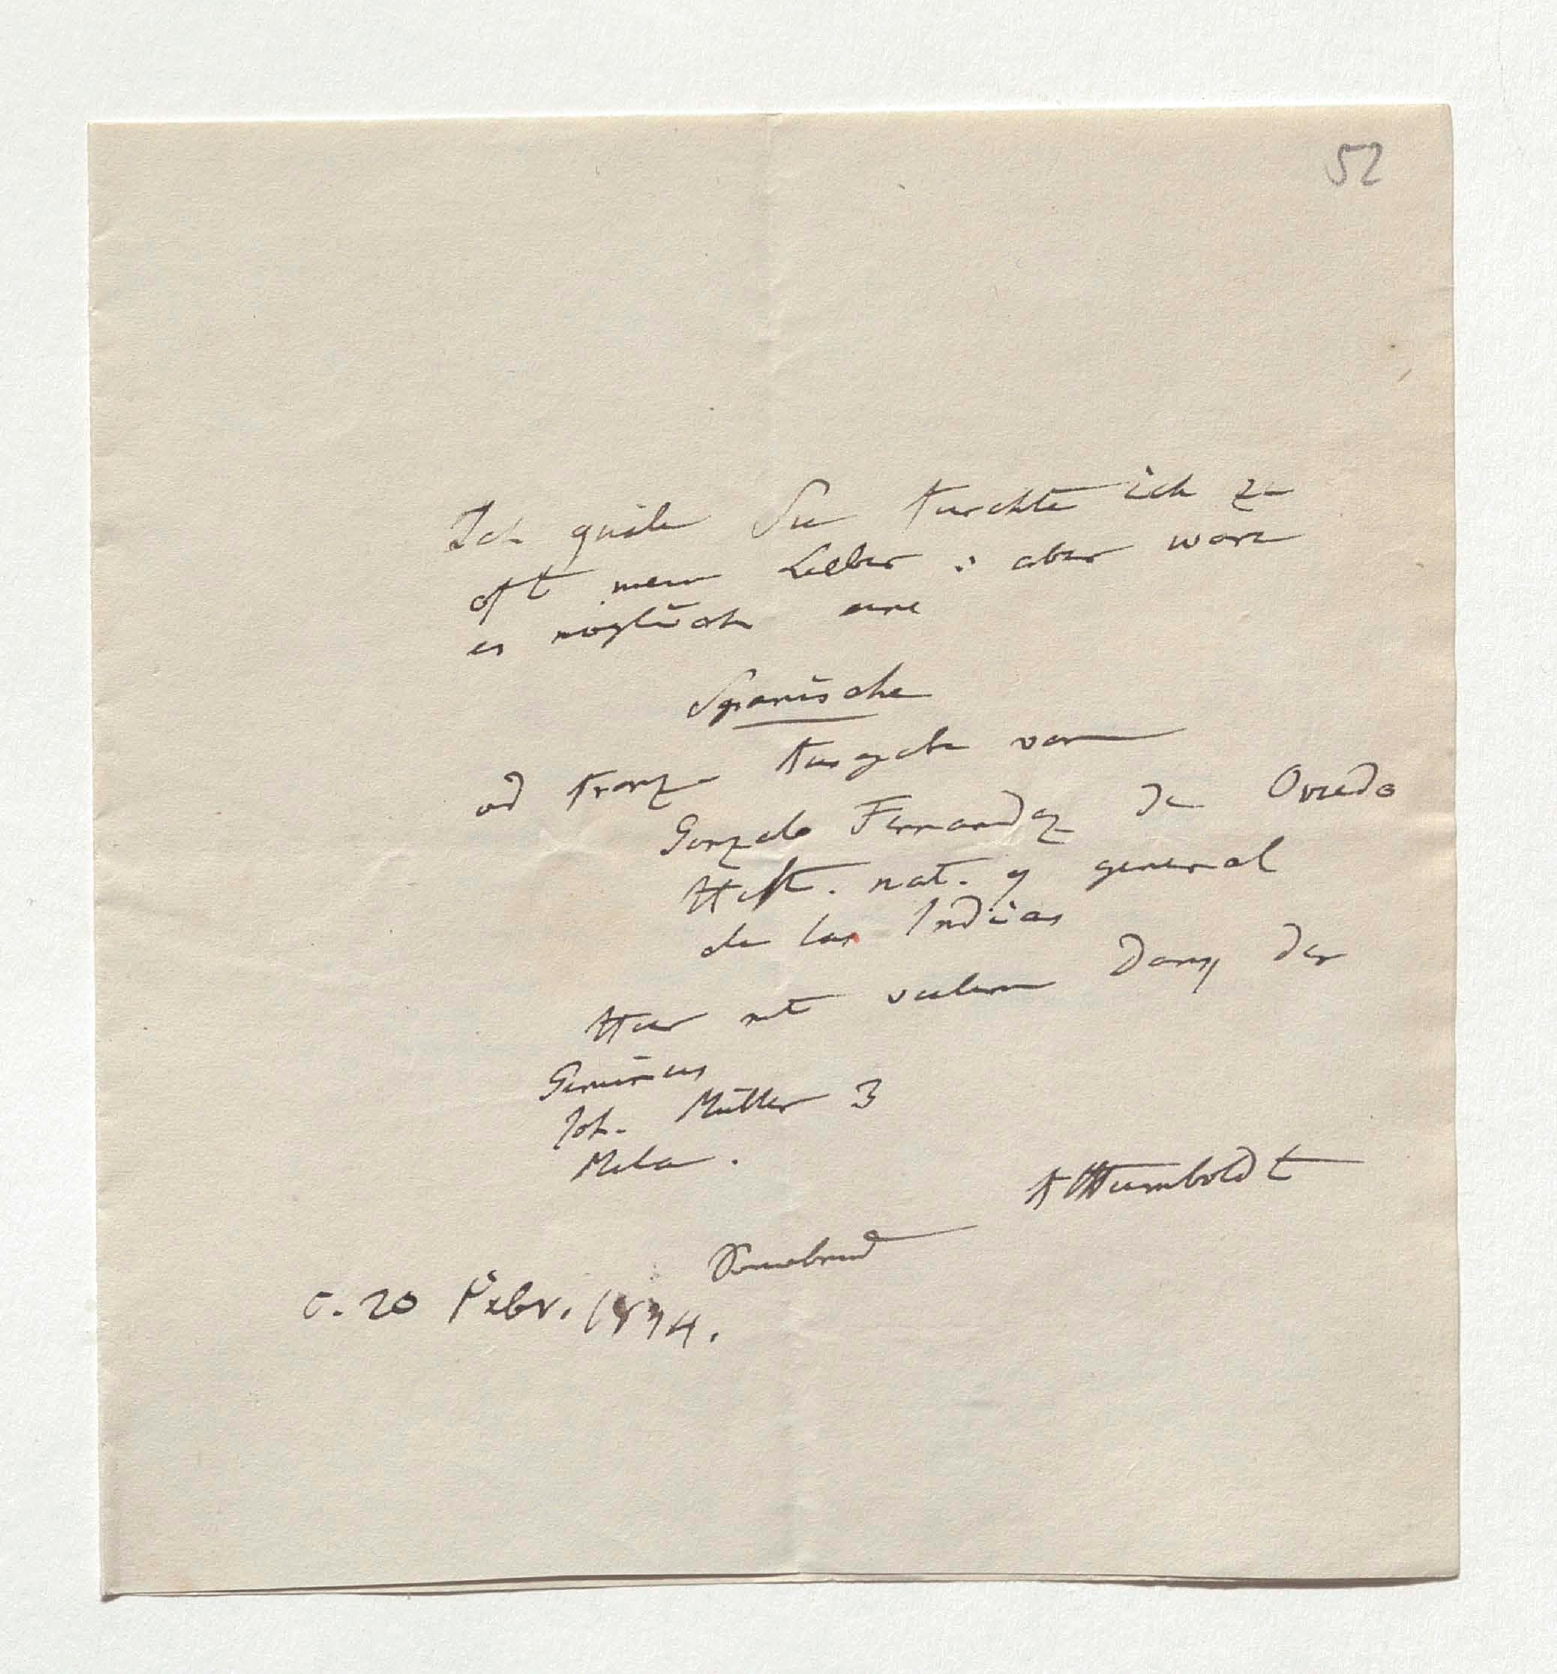 52
Ich quäle Sie fürchte ich zu
oft mein Lieber : aber wäre
es möglich eine
Spanische
od franz. Ausgabe von
Gonzalo Fernandez de Oviedo
Hist. nat. y general
de las Indias
Hier mit vielem Dank der
Geminus
Joh. Müller 3
Mela.
AHumboldt
Sonnabend
c. 20 Febr. 1834.